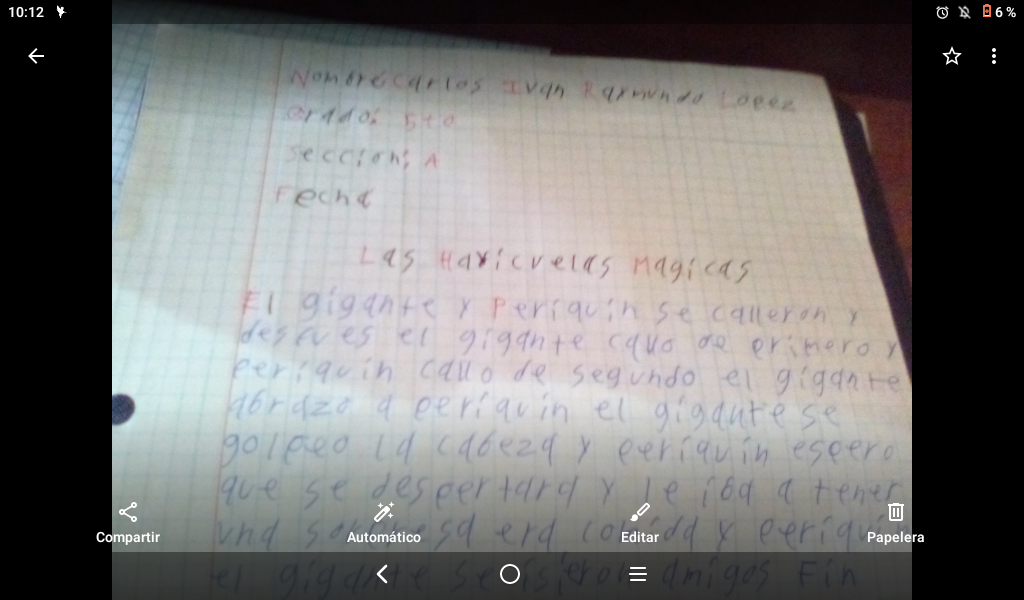 10:12
6 %
Nombre Carlos Ivan Raymundo Lopez
Grado: 5to
Seccion: A
Fecha
Las Havicuelas Magicas
El gigante y Periquin se calleron y
despues el gigante callo de primero y
periquin callo de segundo el gigante
abrazo a periquin el gigante se
golpeo la cabeza y periquin espero
que se despertara y le iba a tener
una era comida y periquin
el gigante se amigos Fin
Compartir
Automático
Editar
Papelera